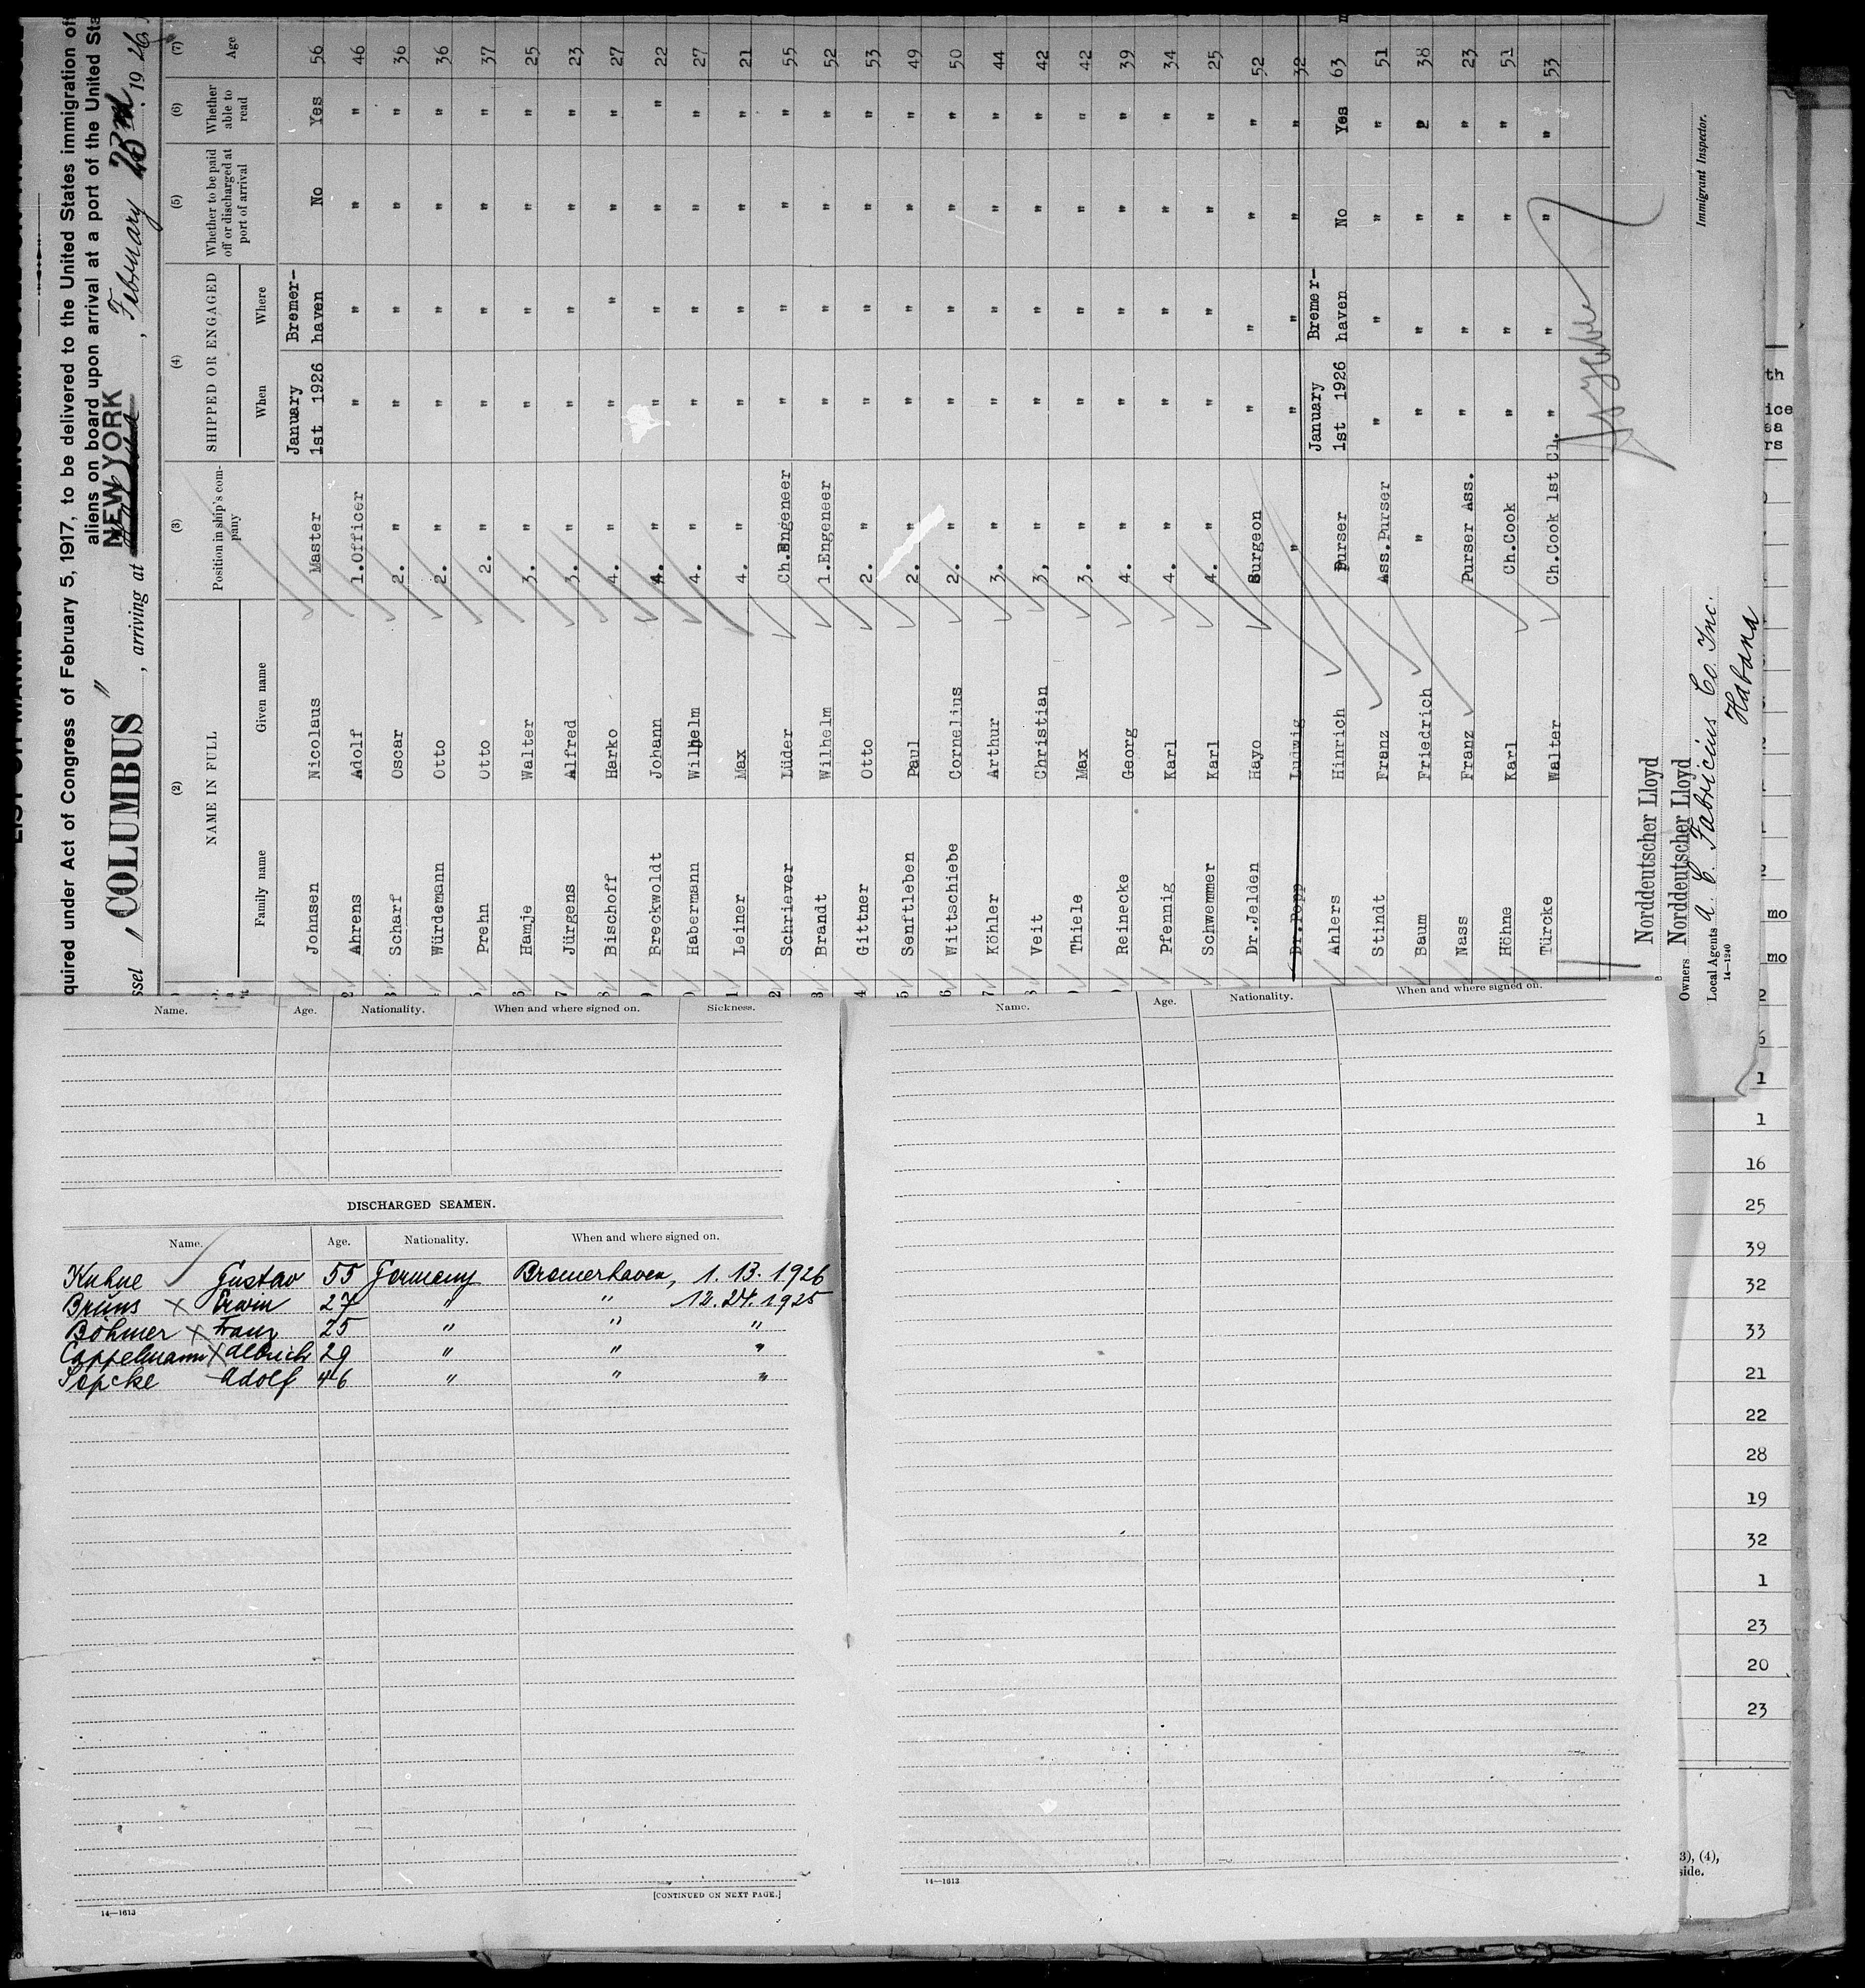 quired under Act of Congress of February 5, 1917, to be delivered to the United States immigration of
aliens on board upon arrival at a port of the United Sta
NEW YORK
ssel "COLUMBUS", arriving at , February 23rd, 1926
(2) (3) (4) (5) (6) (7)
NAME IN FULL Position in ship's company SHIPPED OR ENGAGED Whether to be paid off or discharged at port of arrival Whether able to read Age
Family name Given name When Where
Johnsen Nicolaus Master January 1st 1926 Bremerhaven No Yes 56
Ahrens Adolf 1.Officer " " " " 46
Scharf Oscar 2. " " " " " 36
Würdemann Otto 2. " " " " " 36
Prehn Otto 2. " " " " " 37
Hamje Walter 3. " " " " " 25
Jürgens Alfred 3. " " " " " 23
Bischoff Harko 4. " " " " " 27
Breckwoldt Johann 4. " " " " " 22
Habermann Wilhelm 4. " " " " " 27
Leiner Max 4. " " " " " 21
Schriever Lüder Ch.Engeneer " " " " 55
Brandt Wilhelm 1.Engeneer " " " " 52
Gittner Otto 2. " " " " " 53
Senftleben Paul 2. " " " " " 49
Wittschiebe Cornelius 2. " " " " " 50
Köhler Arthur 3. " " " " " 44
Veit Christian 3, " " " " " 42
Thiele Max 3. " " " " " 42
Reinecke Georg 4. " " " " " 39
Pfennig Karl 4. " " " " " 34
Schwemmer Karl 4. " " " " " 25
Dr.Jelden Hayo Surgeon " " " " 52
Dr.Popp Ludwig " " " " " 32
Ahlers Hinrich Purser January 1st 1926 Bremerhaven No Yes 63
Stindt Franz Ass.Purser " " " " 51
Baum Friedrich " " " " " 38
Nass Franz Purser Ass. " " " " 23
Höhne Karl Ch.Cook " " " " 51
Türcke Walter Ch.Cook 1st Cl. " " " " 53
Norddeutscher Lloyd
Owners Norddeutscher Lloyd
Local Agents A. C. Fabricius Co. Inc.
Habana
14—1240
Immigrant Inspector.
Name. Age. Nationality. When and where signed on. Sickness.
DISCHARGED SEAMEN.
Name. Age. Nationality. When and where signed on.
Kuhne Gustav 55 Germany Bremerhaven, 1. 13. 1926
Bruns x Erwin 27 " " 12. 24. 1925
Böhmer x Franz 25 " " "
Cappelmann x Albrich 29 " " "
Adolf 46 " " "
[CONTINUED ON NEXT PAGE.]
14—1613
Name. Age. Nationality. When and where signed on.
14—1613
th
ice
ea
rs
mo
mo
2
6
1
1
16
25
39
32
33
21
22
28
19
32
1
23
20
23
3), (4),
side.